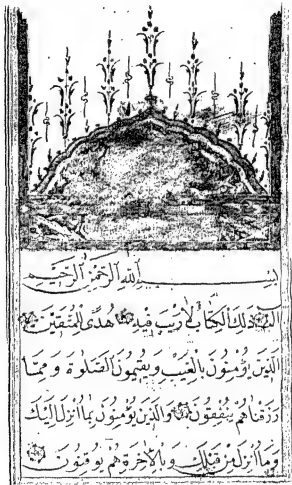 بسم الله الرحمن الرحيم
الم ذلك الكتاب لا ريب فيه هدى للمتقين
الذين يؤمنون بالغيب ويقيمون الصلوة ومما
رزقناهم ينفقون والذين يؤمنون بما انزل اليك
وما انزل من قبلك وبالاخرة هم يوقنون